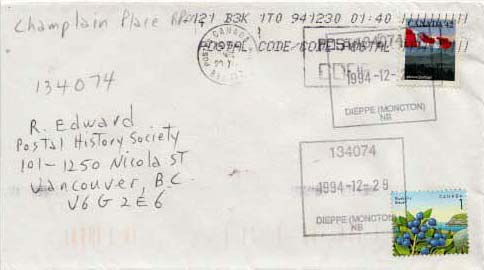 Champlain Place RPO
121 B3K 1T0 941230 01:40
POSTAL CODE/CODE POSTAL
CANADA
134074
1994-12-
DIEPPE (MONCTON)
NB
134074
R. Edward
Postal History Society
101-1250 Nicola ST
Vancouver, B.C.
V6G 2E6
134074
1994-12-29
DIEPPE (MONCTON)
NB
CANADA
1